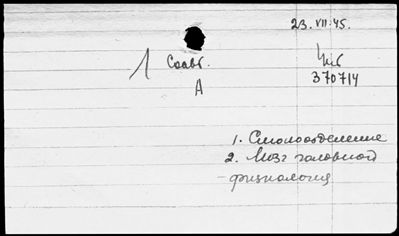 23.VII.45.
1 Соавт.
А
370714
1. Смолоотделение
2. Мозг головной
- физиология